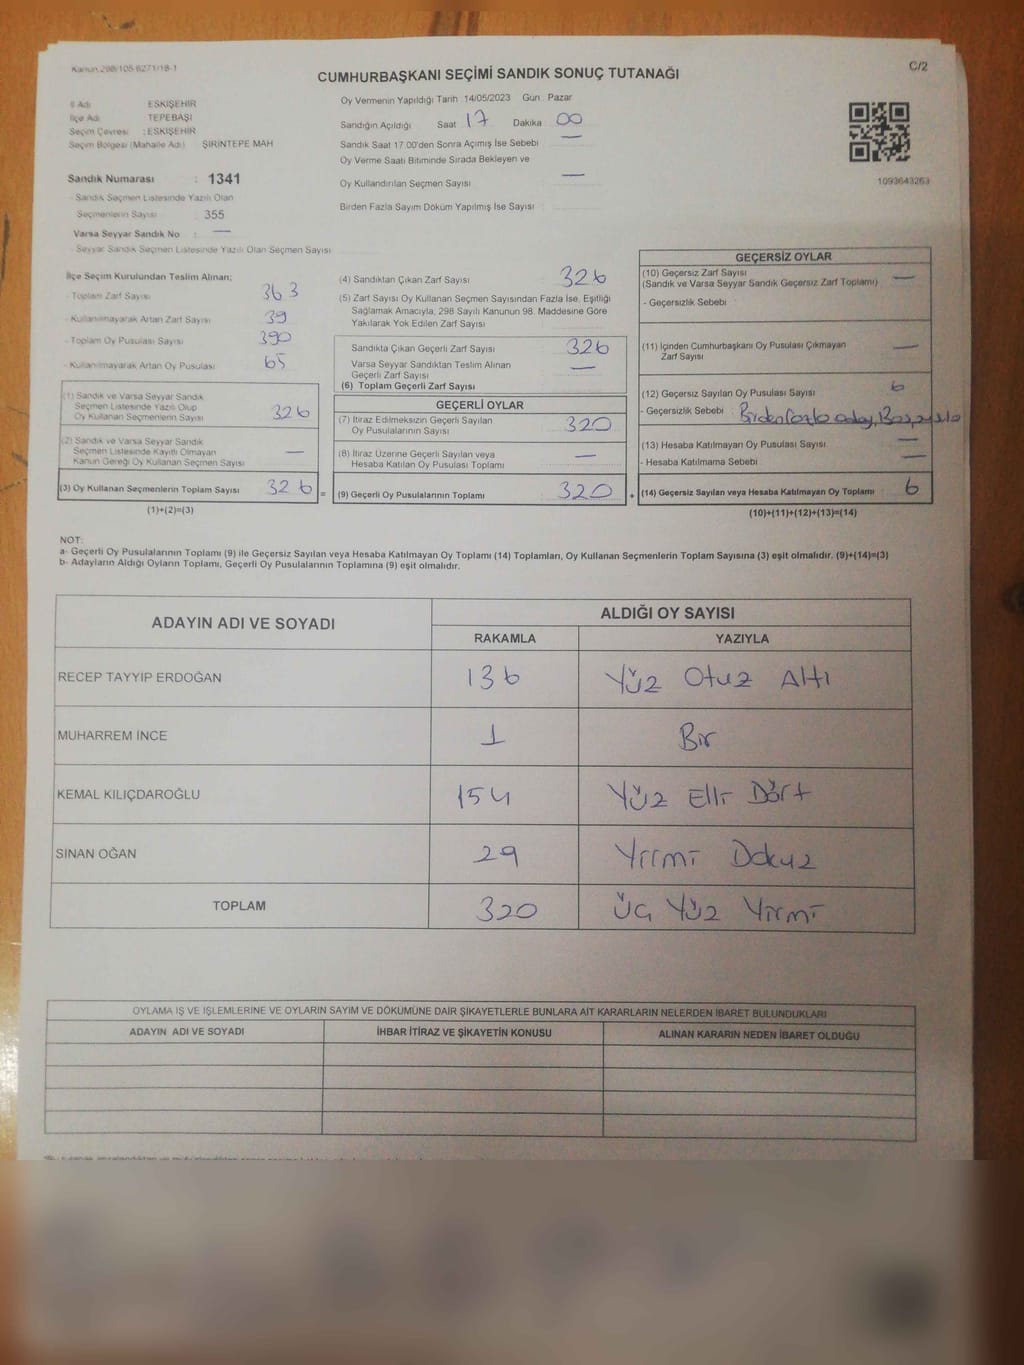 Kanun 298/105-6271/18-1
C/2
CUMHURBAŞKANI SEÇİMİ SANDIK SONUÇ TUTANAĞI
İl Adı : ESKİŞEHİR
İlçe Adı : TEPEBAŞI
Seçim Çevresi : ESKİŞEHİR
Seçim Bölgesi (Mahalle Adı) : ŞİRİNTEPE MAH
Sandık Numarası : 1341
- Sandık Seçmen Listesinde Yazılı Olan
Seçmenlerin Sayısı : 355
Varsa Seyyar Sandık No : —
- Seyyar Sandık Seçmen Listesinde Yazılı Olan Seçmen Sayısı
Oy Vermenin Yapıldığı Tarih 14/05/2023 Gün Pazar
Sandığın Açıldığı Saat 17 Dakika 00
Sandık Saat 17.00'den Sonra Açımış İse Sebebi —
Oy Verme Saati Bitiminde Sırada Bekleyen ve
Oy Kullandırılan Seçmen Sayısı —
Birden Fazla Sayım Döküm Yapılmış İse Sayısı
1093643263
İlçe Seçim Kurulundan Teslim Alınan;
- Toplam Zarf Sayısı 363
- Kullanılmayarak Artan Zarf Sayısı 39
- Toplam Oy Pusulası Sayısı 390
- Kullanılmayarak Artan Oy Pusulası 65
(1) Sandık ve Varsa Seyyar Sandık
Seçmen Listesinde Yazılı Olup
Oy Kullanan Seçmenlerin Sayısı 326
(2) Sandık ve Varsa Seyyar Sandık
Seçmen Listesinde Kayıtlı Olmayan
Kanun Gereği Oy Kullanan Seçmen Sayısı —
(3) Oy Kullanan Seçmenlerin Toplam Sayısı 326 =
(1)+(2)=(3)
(4) Sandıktan Çıkan Zarf Sayısı 326
(5) Zarf Sayısı Oy Kullanan Seçmen Sayısından Fazla İse, Eşitliği
Sağlamak Amacıyla, 298 Sayılı Kanunun 98. Maddesine Göre
Yakılarak Yok Edilen Zarf Sayısı
Sandıkta Çıkan Geçerli Zarf Sayısı 326
Varsa Seyyar Sandıktan Teslim Alınan
Geçerli Zarf Sayısı —
(6) Toplam Geçerli Zarf Sayısı
GEÇERLİ OYLAR
(7) İtiraz Edilmeksizin Geçerli Sayılan
Oy Pusulalarının Sayısı 320
(8) İtiraz Üzerine Geçerli Sayılan veya
Hesaba Katılan Oy Pusulası Toplamı —
(9) Geçerli Oy Pusulalarının Toplamı 320 +
GEÇERSİZ OYLAR
(10) Geçersiz Zarf Sayısı
(Sandık ve Varsa Seyyar Sandık Geçersiz Zarf Toplamı) —
- Geçersizlik Sebebi
(11) İçinden Cumhurbaşkanı Oy Pusulası Çıkmayan
Zarf Sayısı —
(12) Geçersiz Sayılan Oy Pusulası Sayısı 6
- Geçersizlik Sebebi Birden fazla aday, Boş pusula
(13) Hesaba Katılmayan Oy Pusulası Sayısı —
- Hesaba Katılmama Sebebi —
(14) Geçersiz Sayılan veya Hesaba Katılmayan Oy Toplamı 6
(10)+(11)+(12)+(13)=(14)
NOT:
a- Geçerli Oy Pusulalarının Toplamı (9) ile Geçersiz Sayılan veya Hesaba Katılmayan Oy Toplamı (14) Toplamları, Oy Kullanan Seçmenlerin Toplam Sayısına (3) eşit olmalıdır. (9)+(14)=(3)
b- Adayların Aldığı Oyların Toplamı, Geçerli Oy Pusulalarının Toplamına (9) eşit olmalıdır.
ADAYIN ADI VE SOYADI ALDIĞI OY SAYISI
RAKAMLA YAZIYLA
RECEP TAYYIP ERDOĞAN 136 Yüz Otuz Altı
MUHARREM İNCE 1 Bir
KEMAL KILIÇDAROĞLU 154 Yüz Elli Dört
SİNAN OĞAN 29 Yirmi Dokuz
TOPLAM 320 Üç Yüz Yirmi
OYLAMA İŞ VE İŞLEMLERİNE VE OYLARIN SAYIM VE DÖKÜMÜNE DAİR ŞİKAYETLERLE BUNLARA AİT KARARLARIN NELERDEN İBARET BULUNDUKLARI
ADAYIN ADI VE SOYADI İHBAR İTİRAZ VE ŞİKAYETİN KONUSU ALINAN KARARIN NEDEN İBARET OLDUĞU